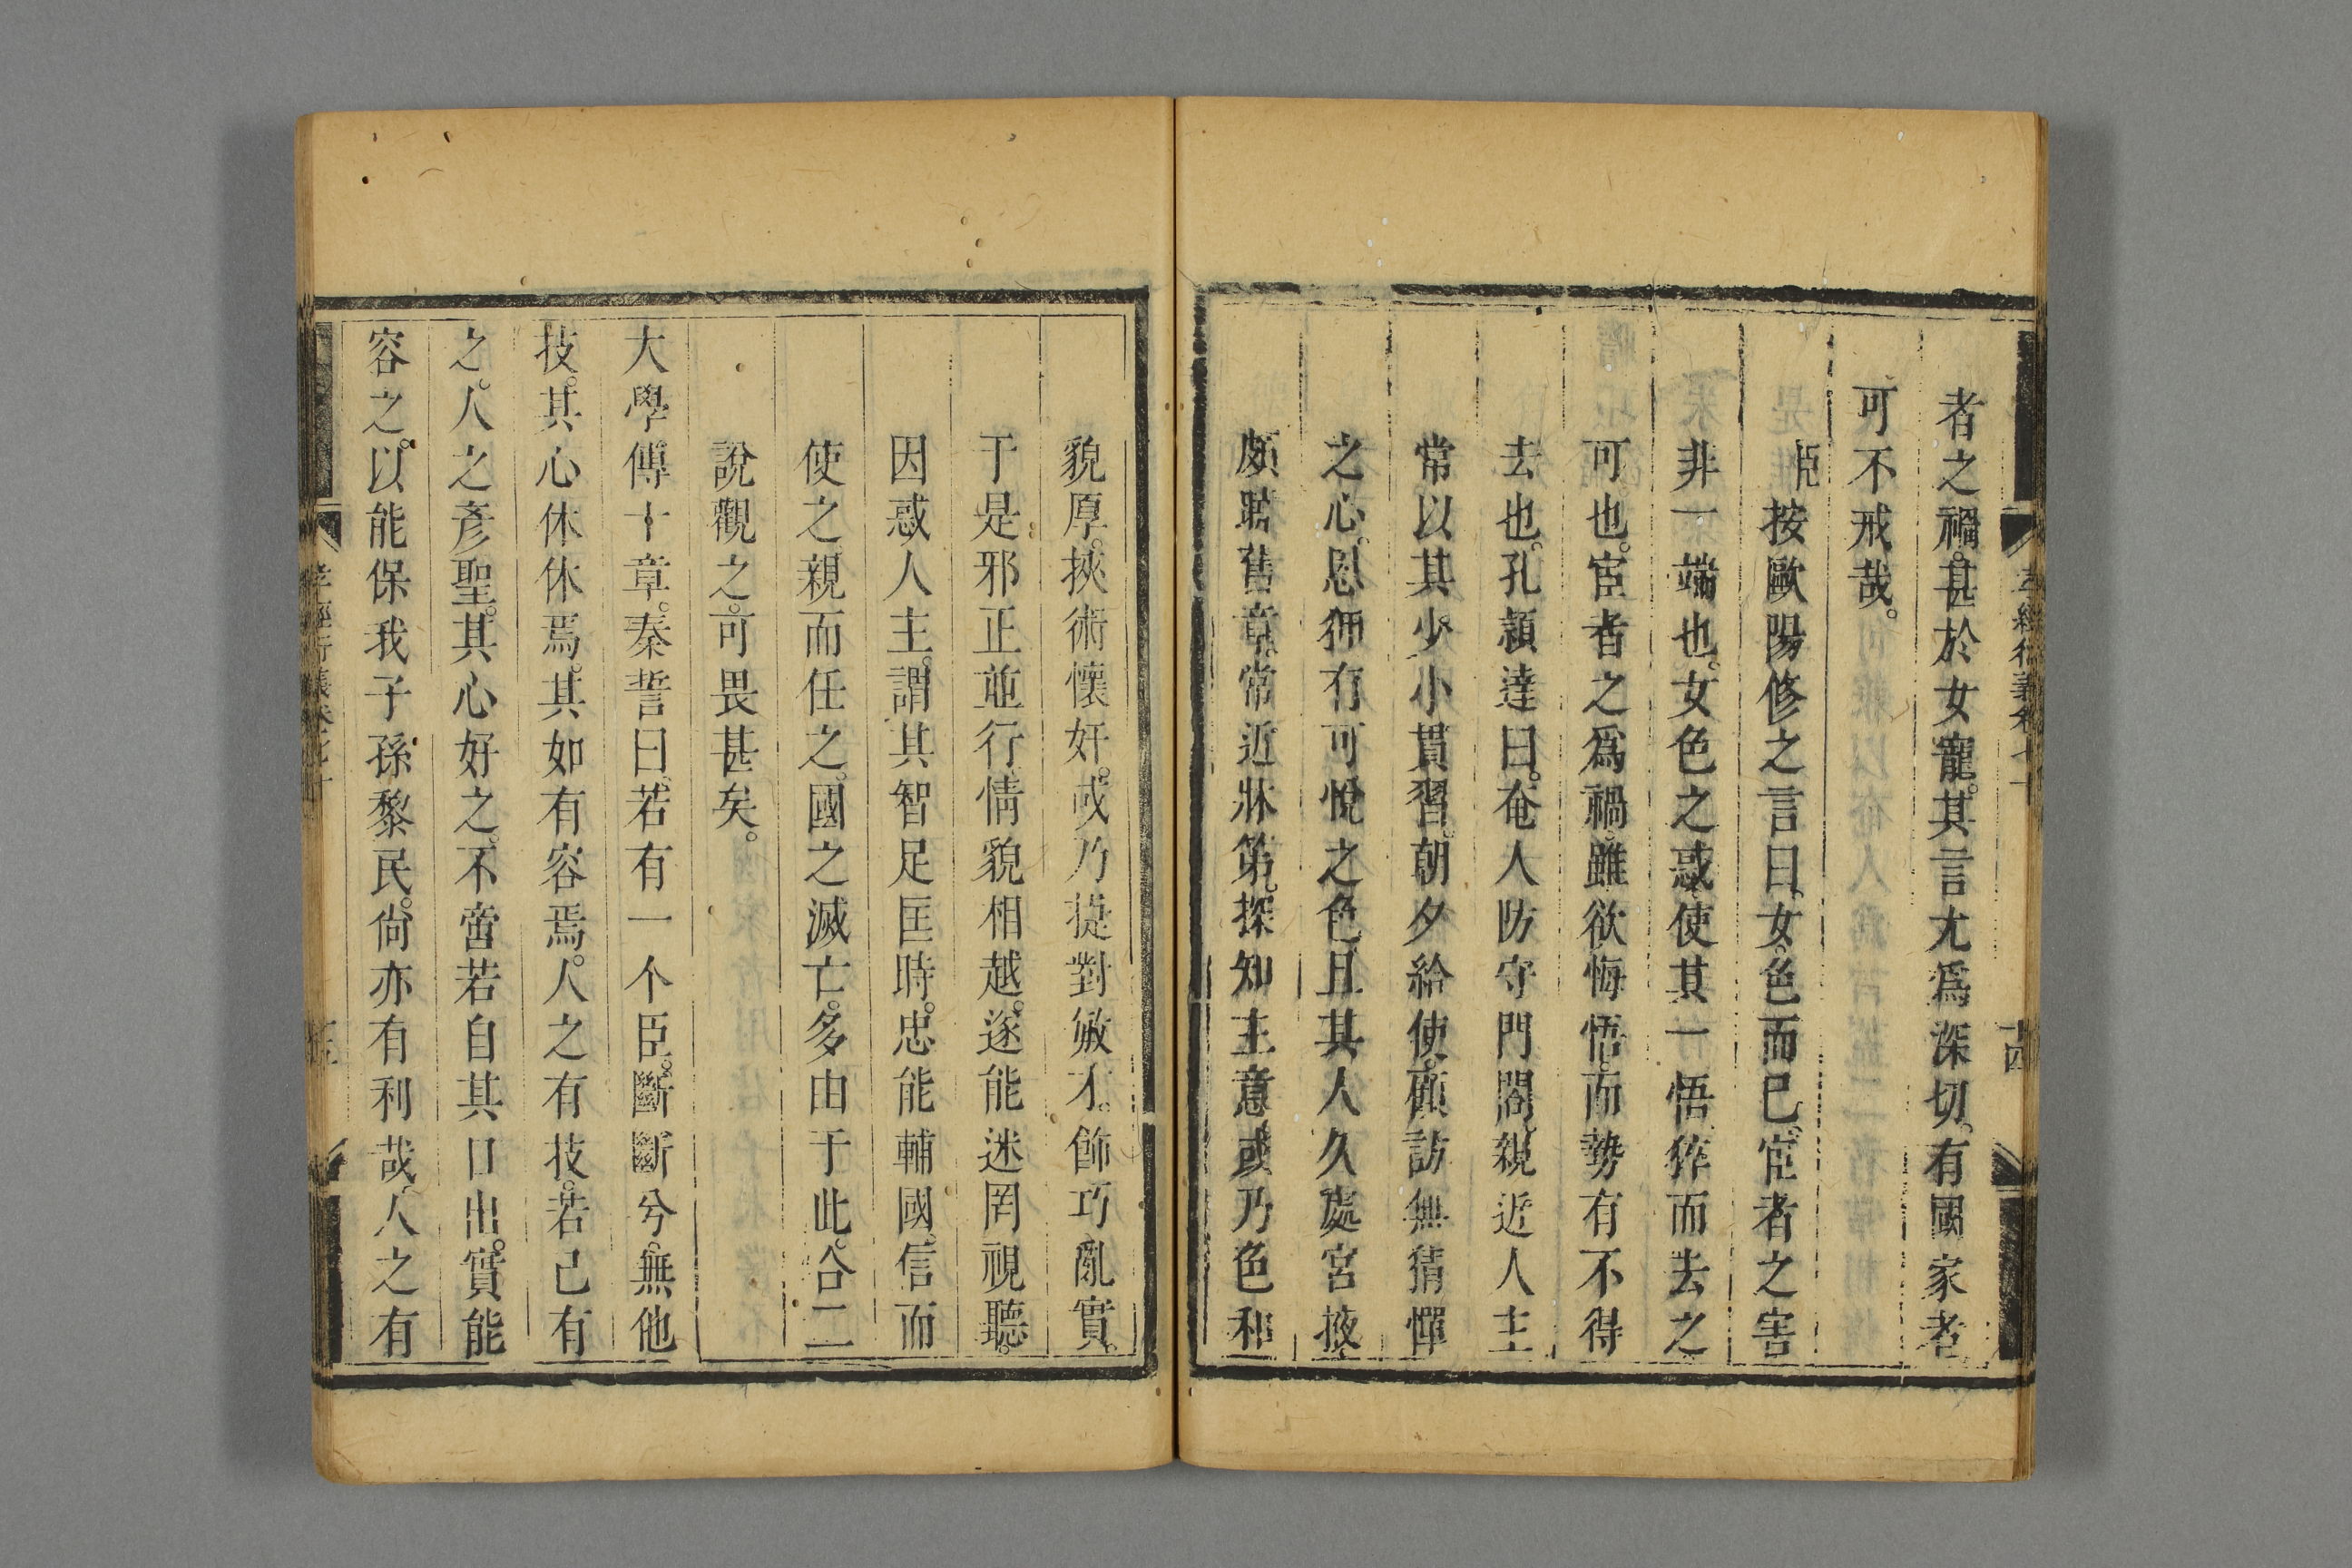 者之禍。甚於女寵。其言尤爲深切。有國家者
可不戒哉。
臣按歐陽修之言曰。女色而已。宦者之害
非一端也。女色之惑。使其一悟。捽而去之
可也。宦者之爲禍。雖欲悔悟。而勢有不得
去也。孔穎達曰。奄人防守門閤。親近人主
常以其少小貫習。朝夕給使。顧訪無猜憚
之心。恩狎有可悅之色。且其人久處宮掖
頗曉舊章。常近牀第。探知主意。或乃色和
貌厚。挾術懷奸。或乃捷對敏才。飾巧亂實。
于是邪正並行。情貌相越。遂能迷罔視聽。
因惑人主。謂其智足匡時。忠能輔國。信而
使之。親而任之。國之滅亡。多由于此。合二
說觀之。可畏甚矣。
大學傳十章。秦誓曰。若有一个臣。斷斷兮無他
技。其心休休焉。其如有容焉。人之有技。若己有
之。人之彥聖。其心好之。不啻若自其口出。實能
容之。以能保我子孫黎民。尚亦有利哉。人之有
孝經衍義卷七十
十四